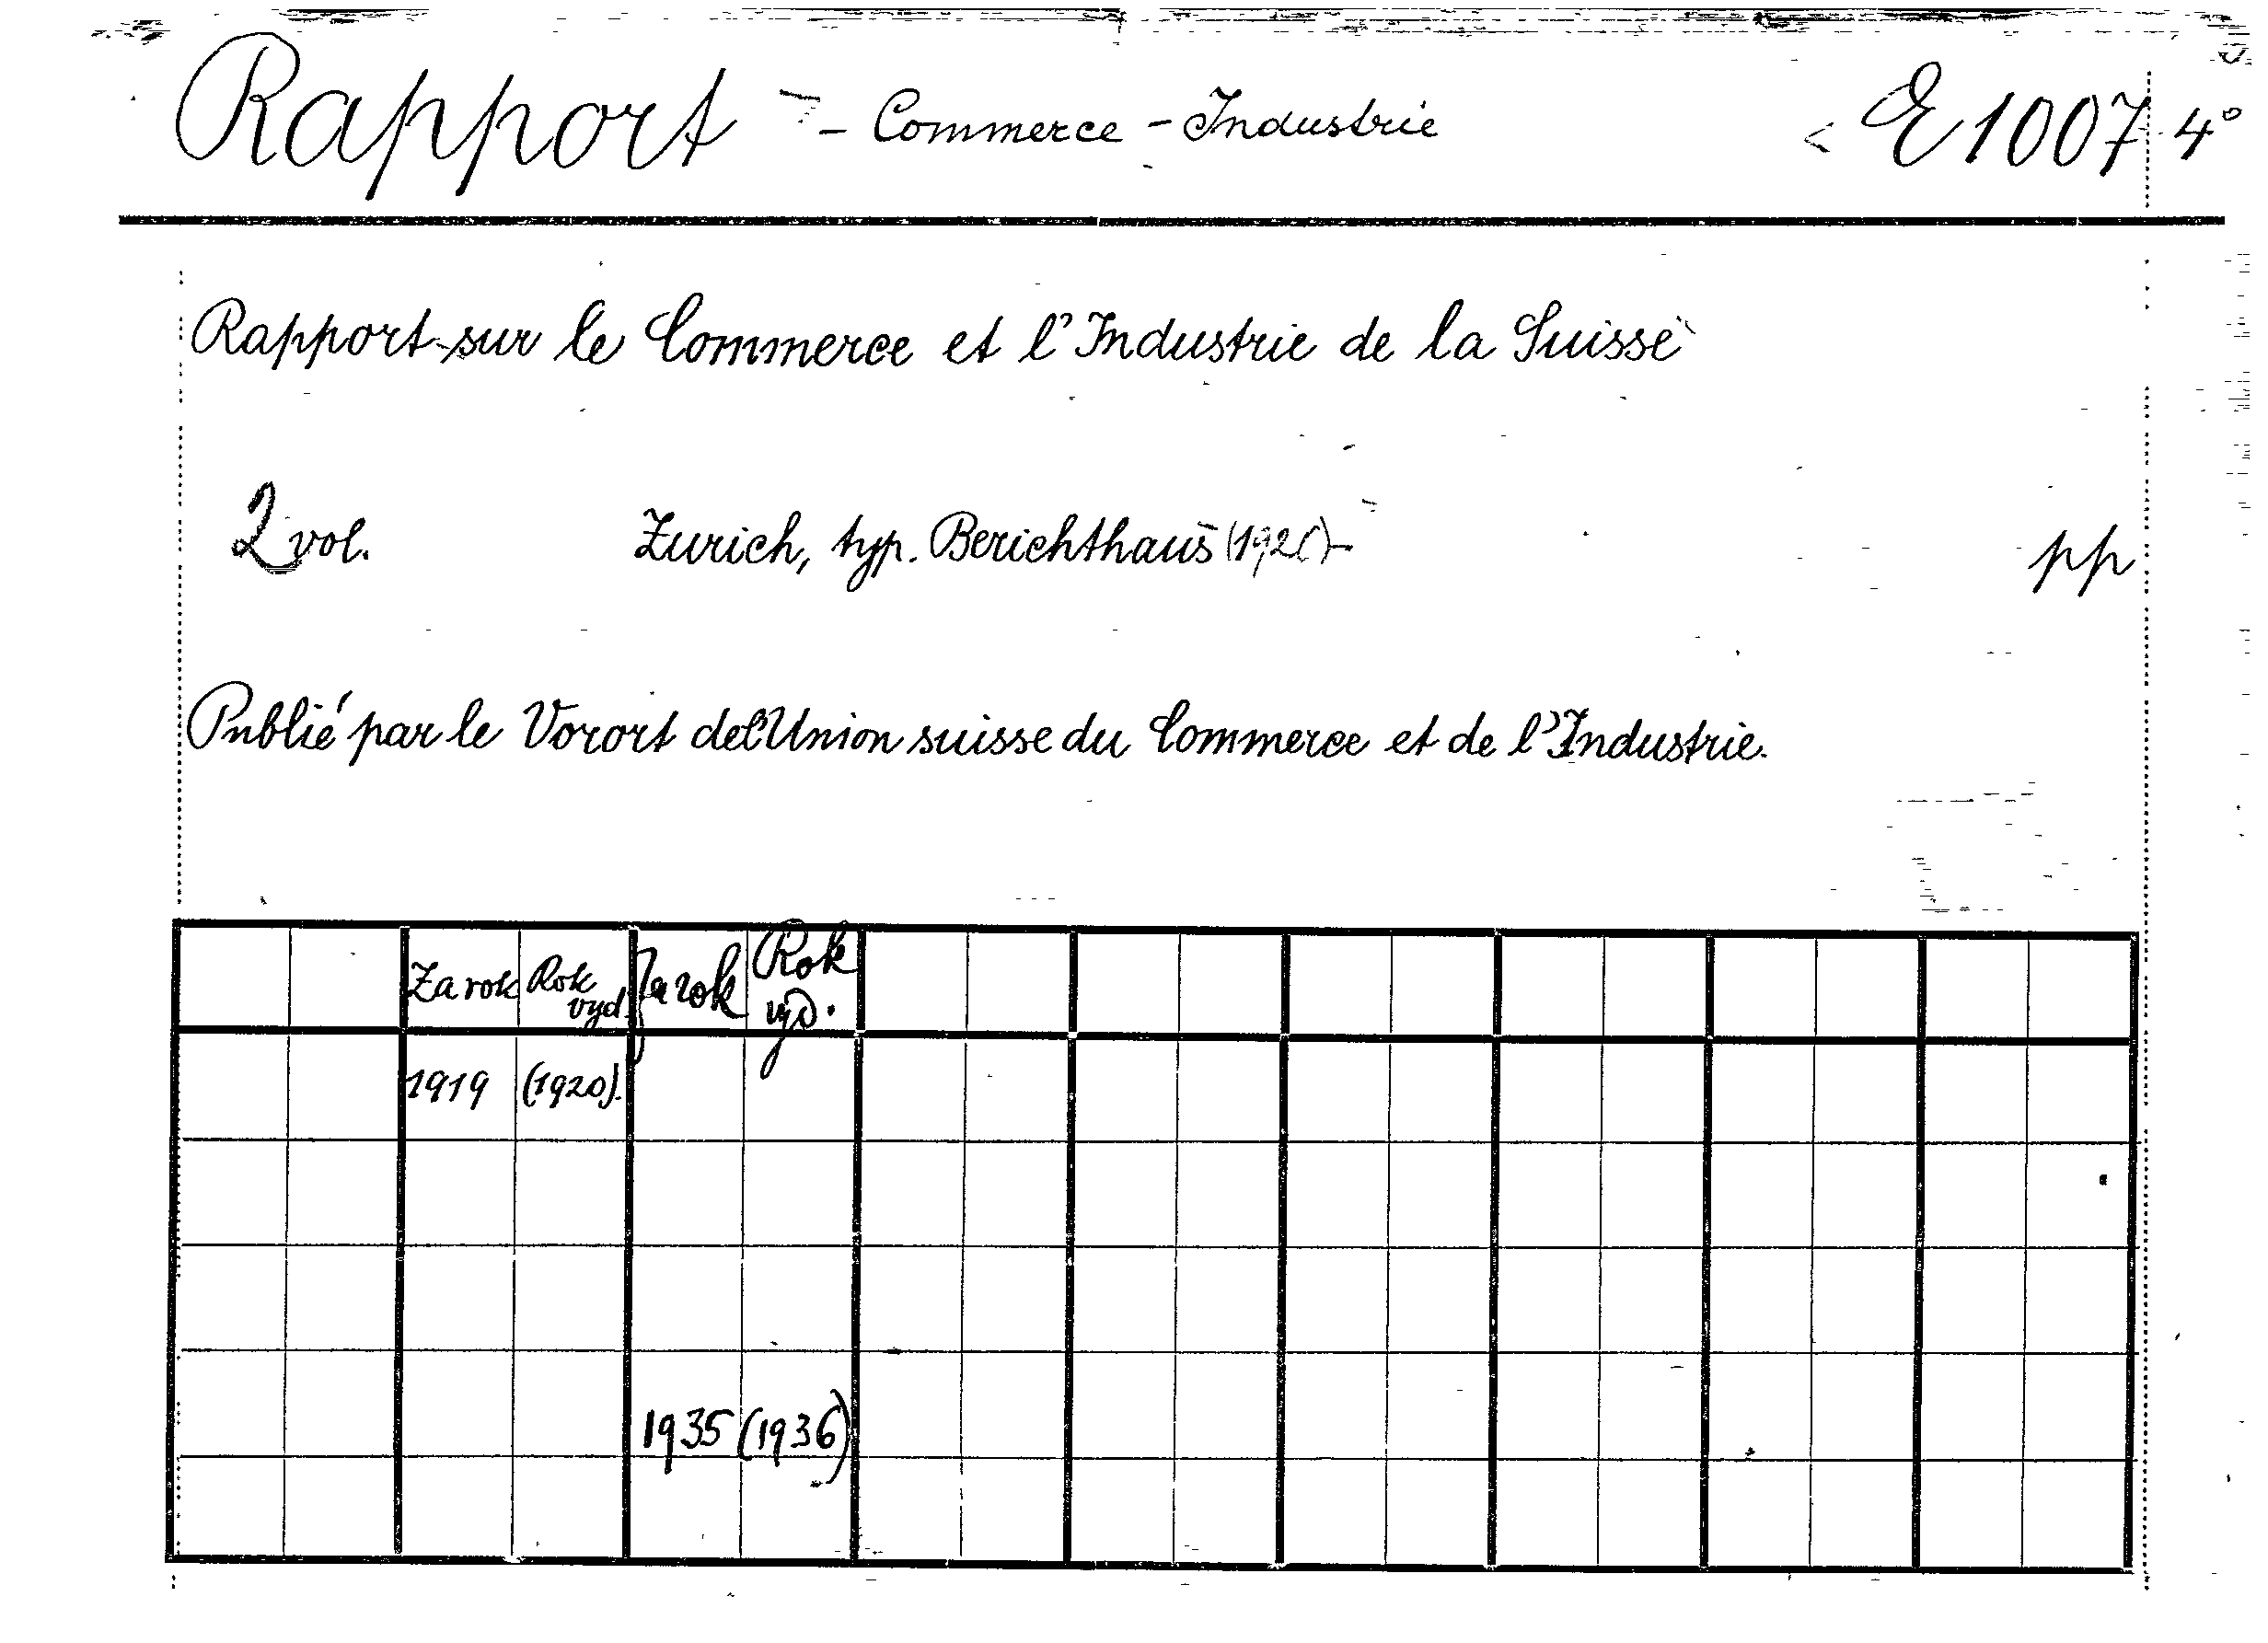 Rapport - Commerce - Industrie E 1007 4°
Rapport sur le Commerce et l'Industrie de la Suisse
2 vol. Zurich, typ. Berichthaus pp
Publié par le Vorort de l'Union suisse du Commerce et de l'Industrie.
Za rok Rok vyd. Za rok Rok vyd.
1919 (1920).
1935 (1936)